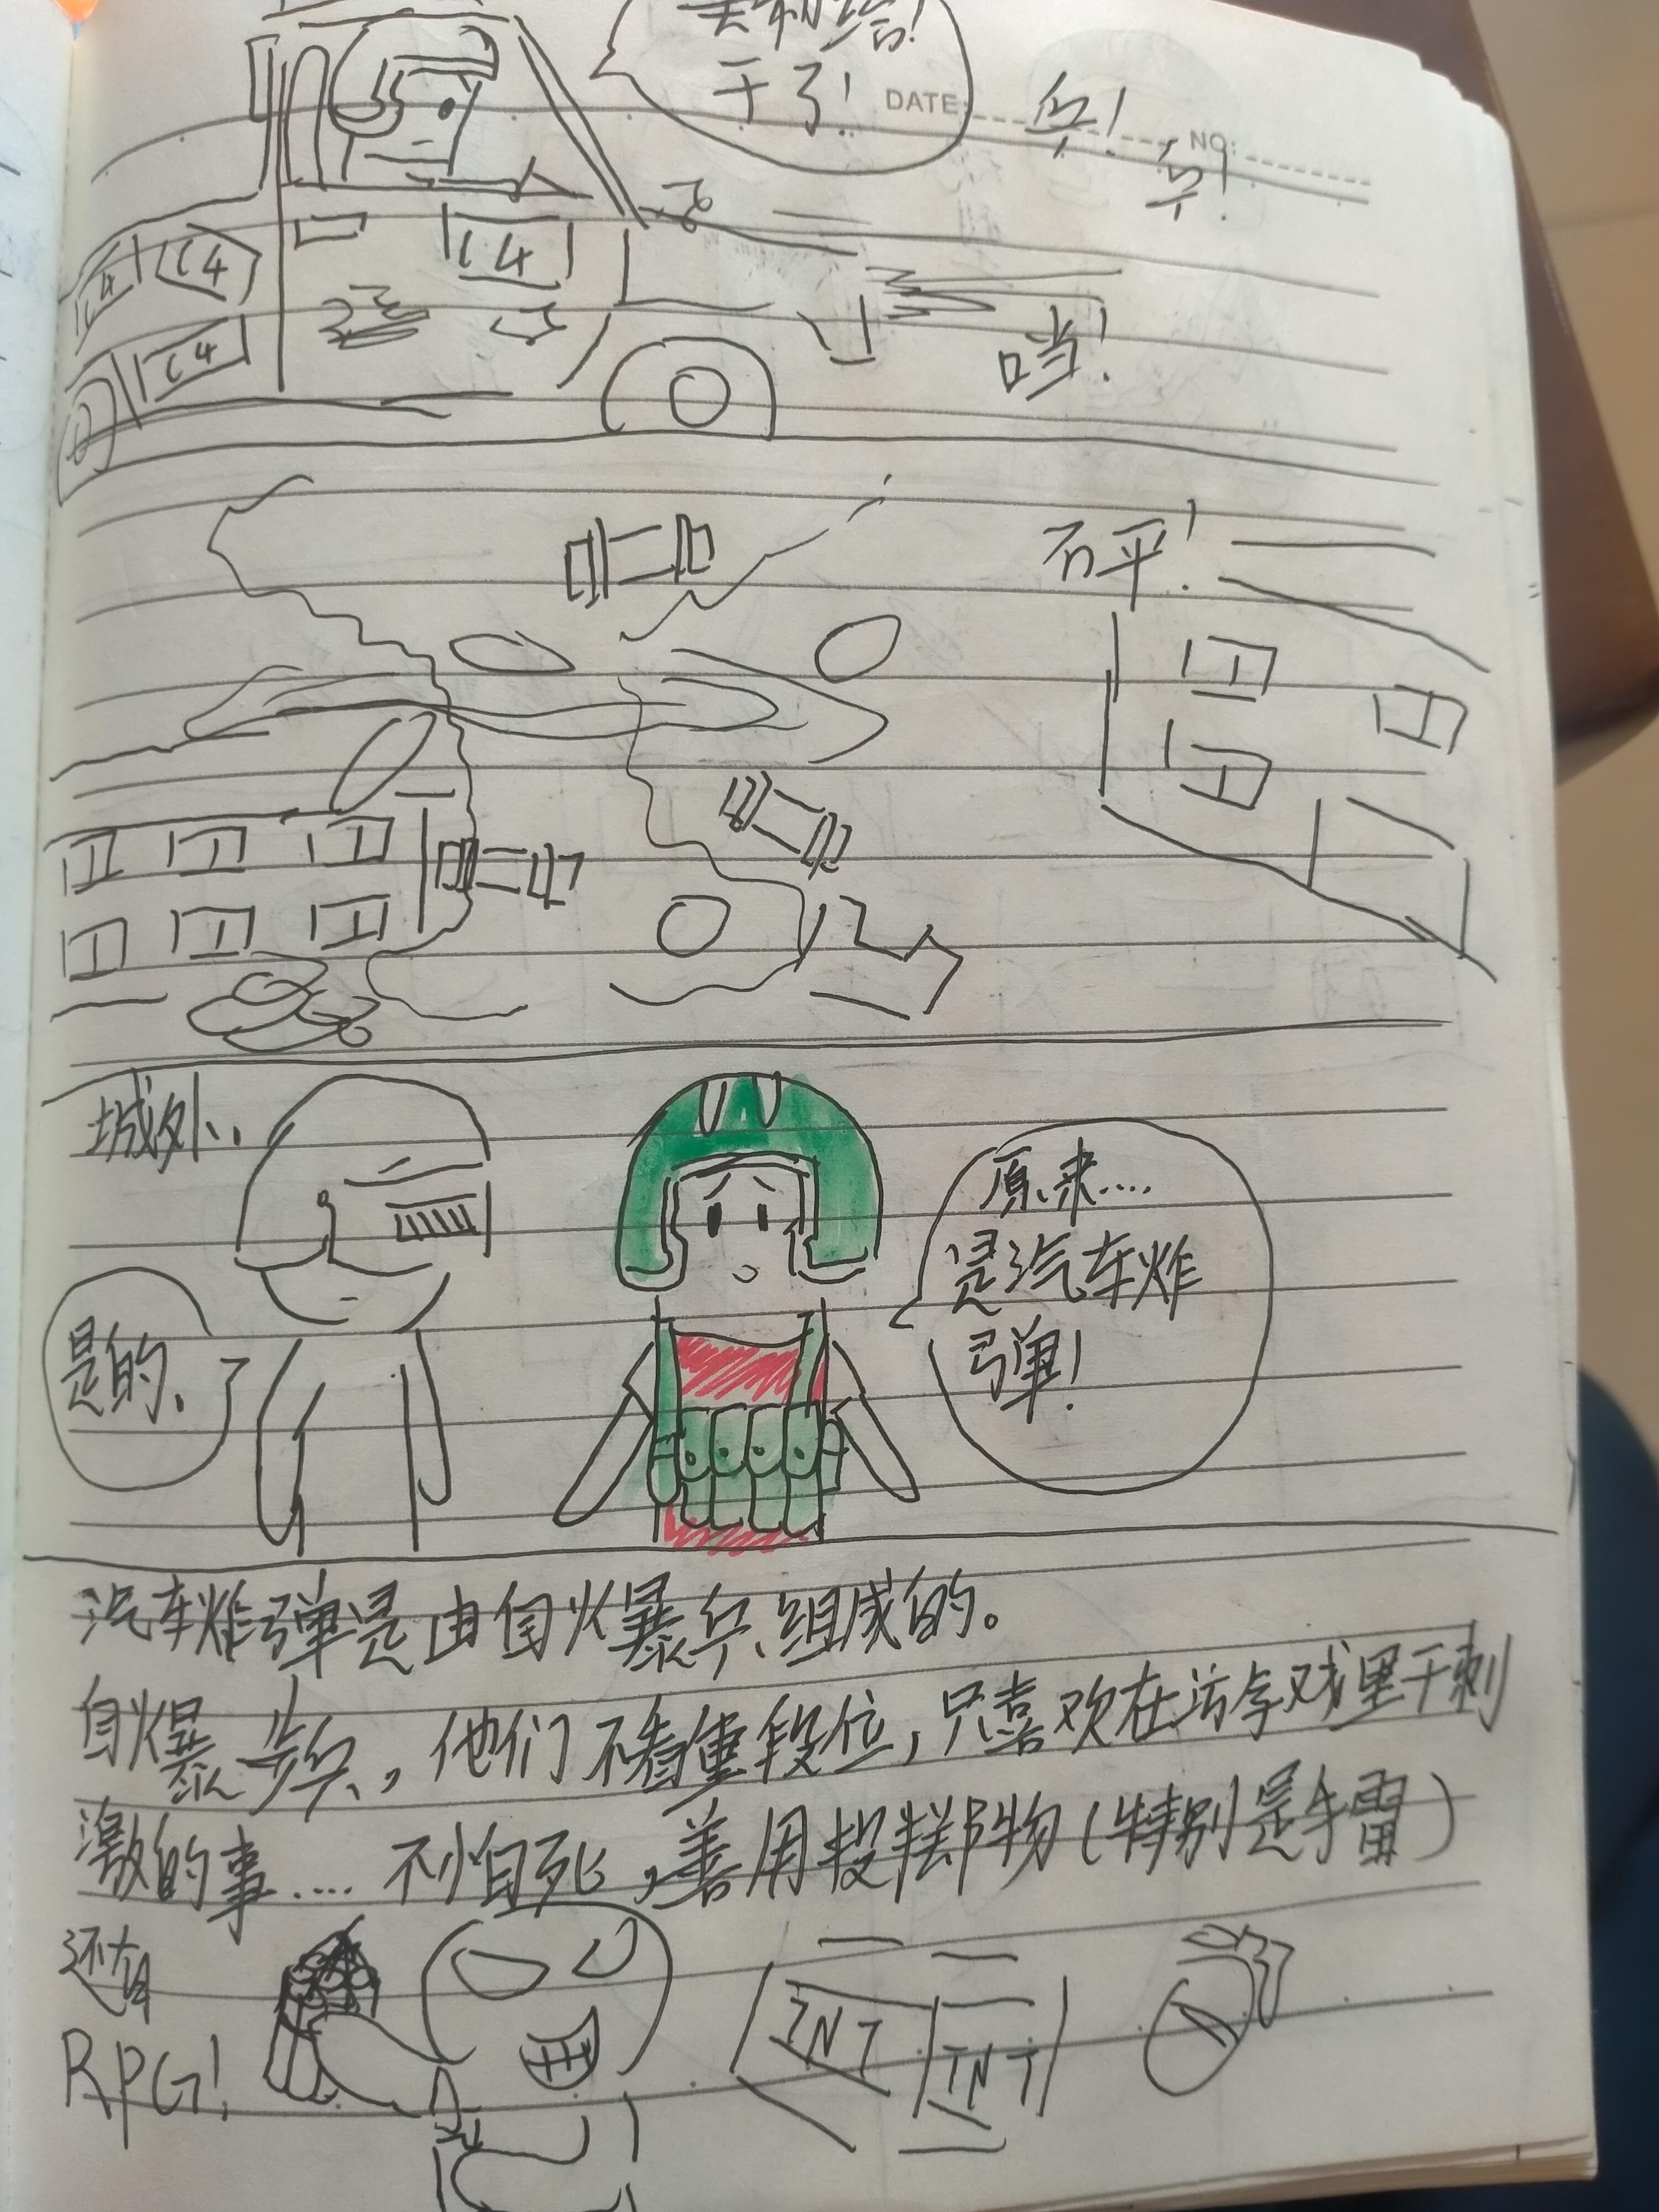 干了!
DATE:
NO:
乓!
乓!
C4
C4
C4
C4
当!
城外、
是的、
原来....
是汽车炸
弹!
汽车炸弹是由自爆兵组成的。
自爆步兵，他们不看重段位，只喜欢在游戏里干刺
激的事.... 不怕死，善用投掷物(特别是手雷)
还有
RPG!
TNT
TNT